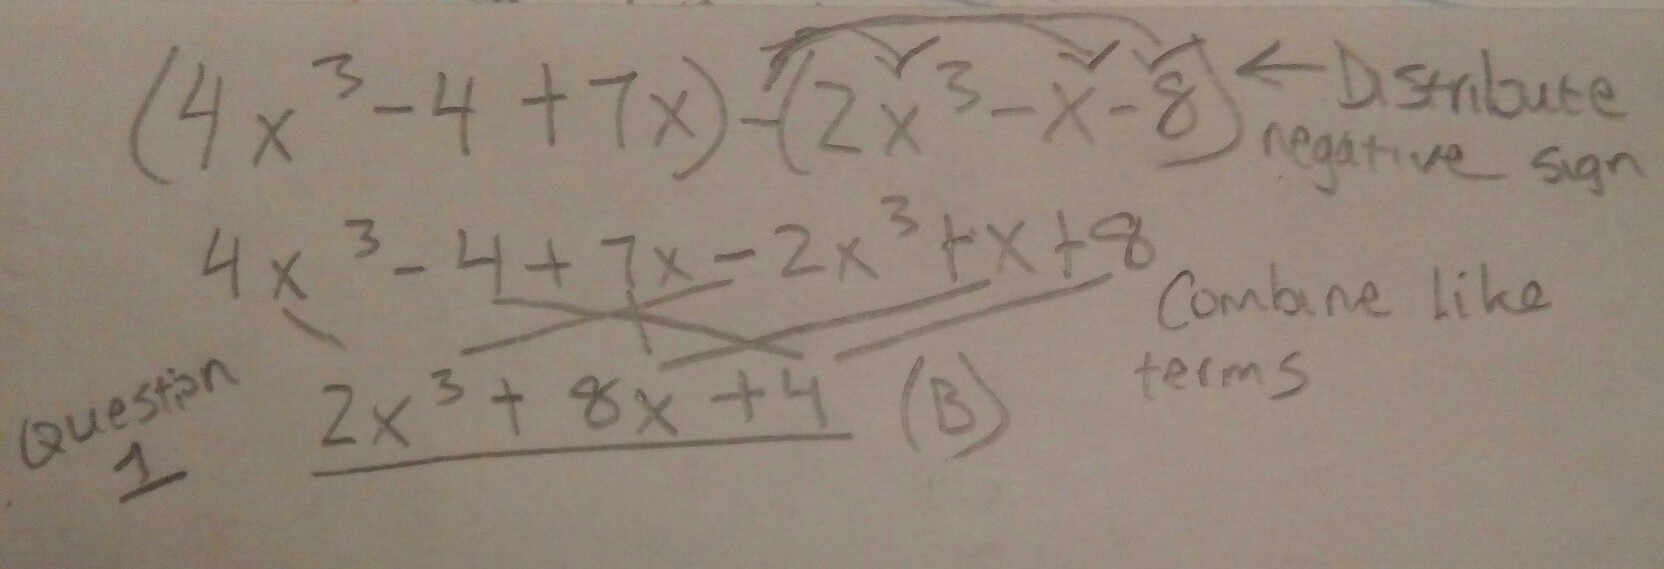 (4x³-4+7x)-(2x³-x-8) ← Distribute
negative sign
4x³-4+7x-2x³+x+8
Combine like
terms
Question
1
2x³+8x+4 (B)